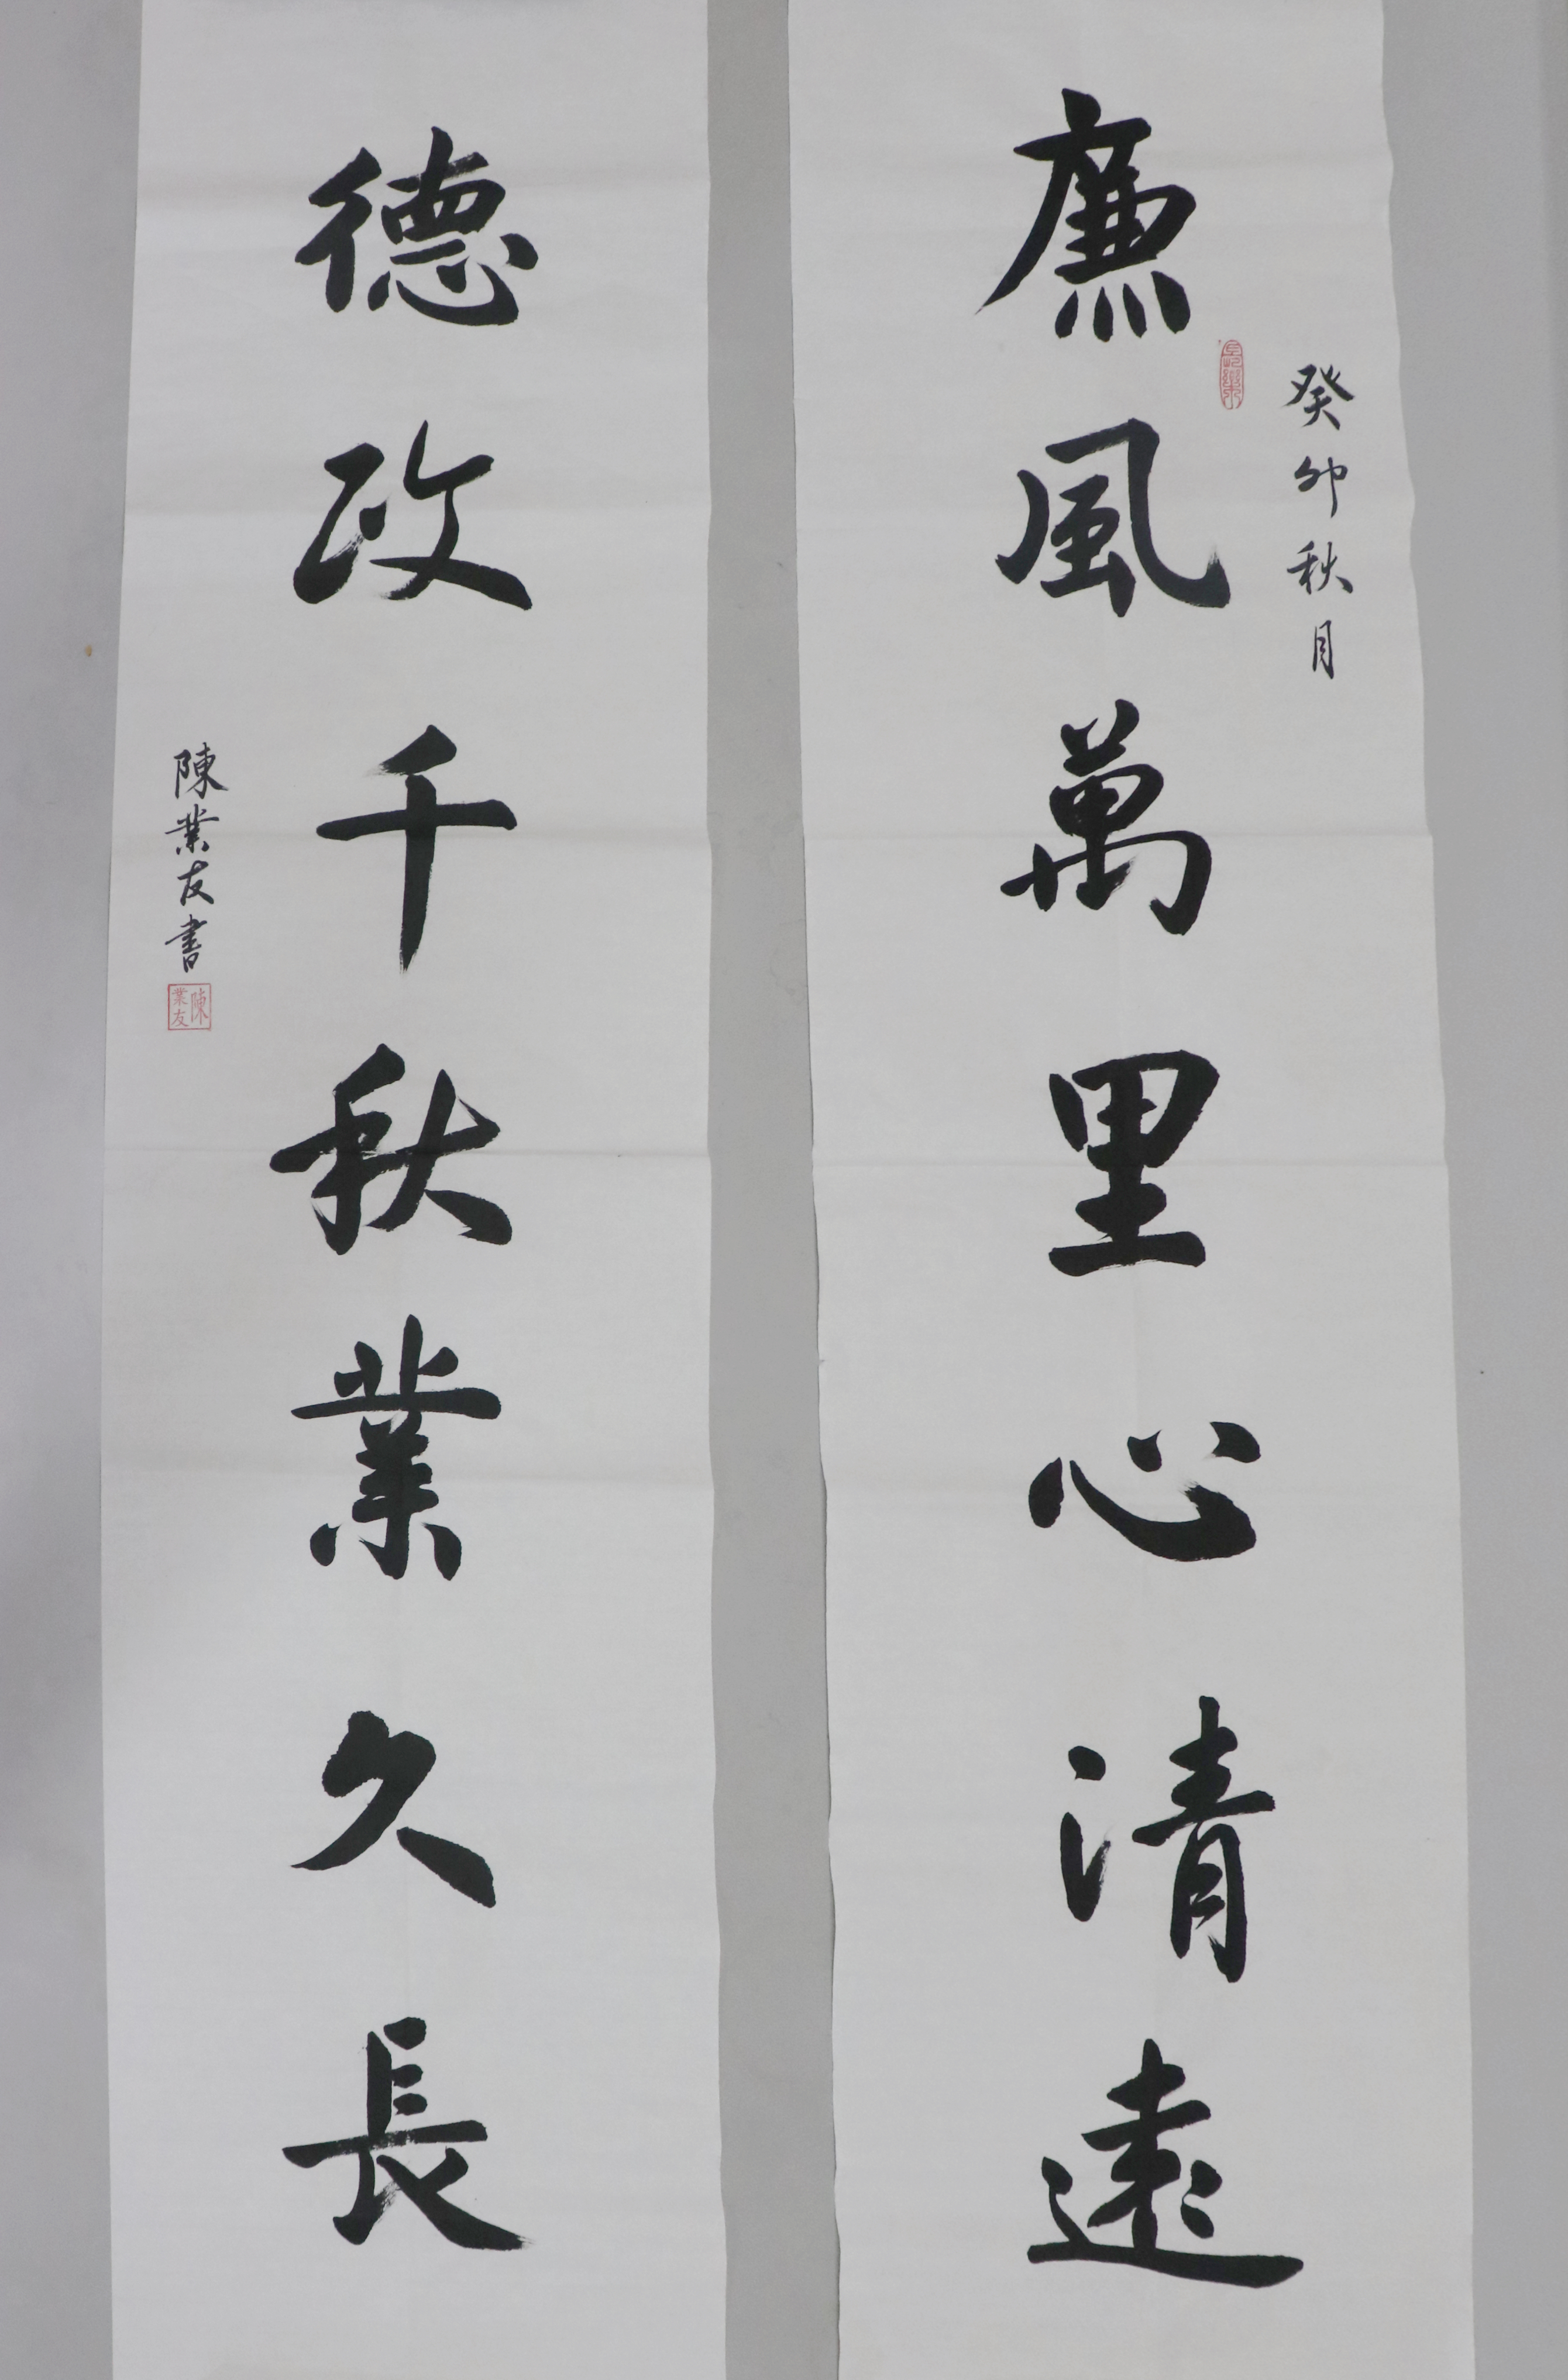 廉風萬里心清遠
癸卯秋月
德政千秋業久長
陳業友書
陳業友